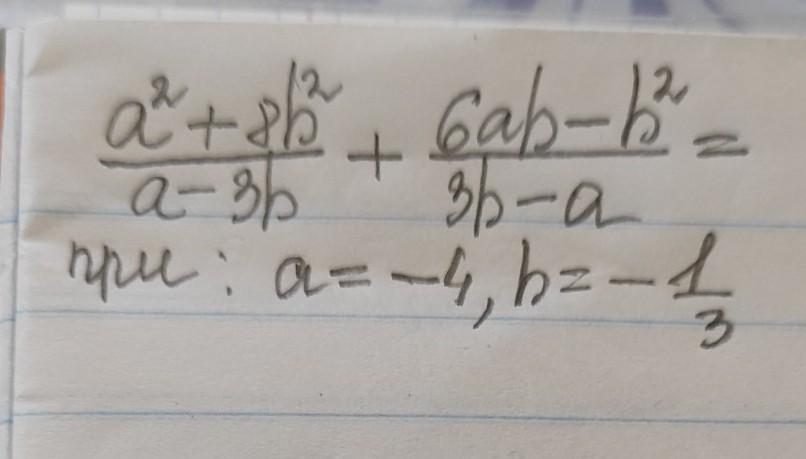 (a²+8b²)/(a-3b) + (6ab-b²)/(3b-a) =
при: a=-4, b=-1/3